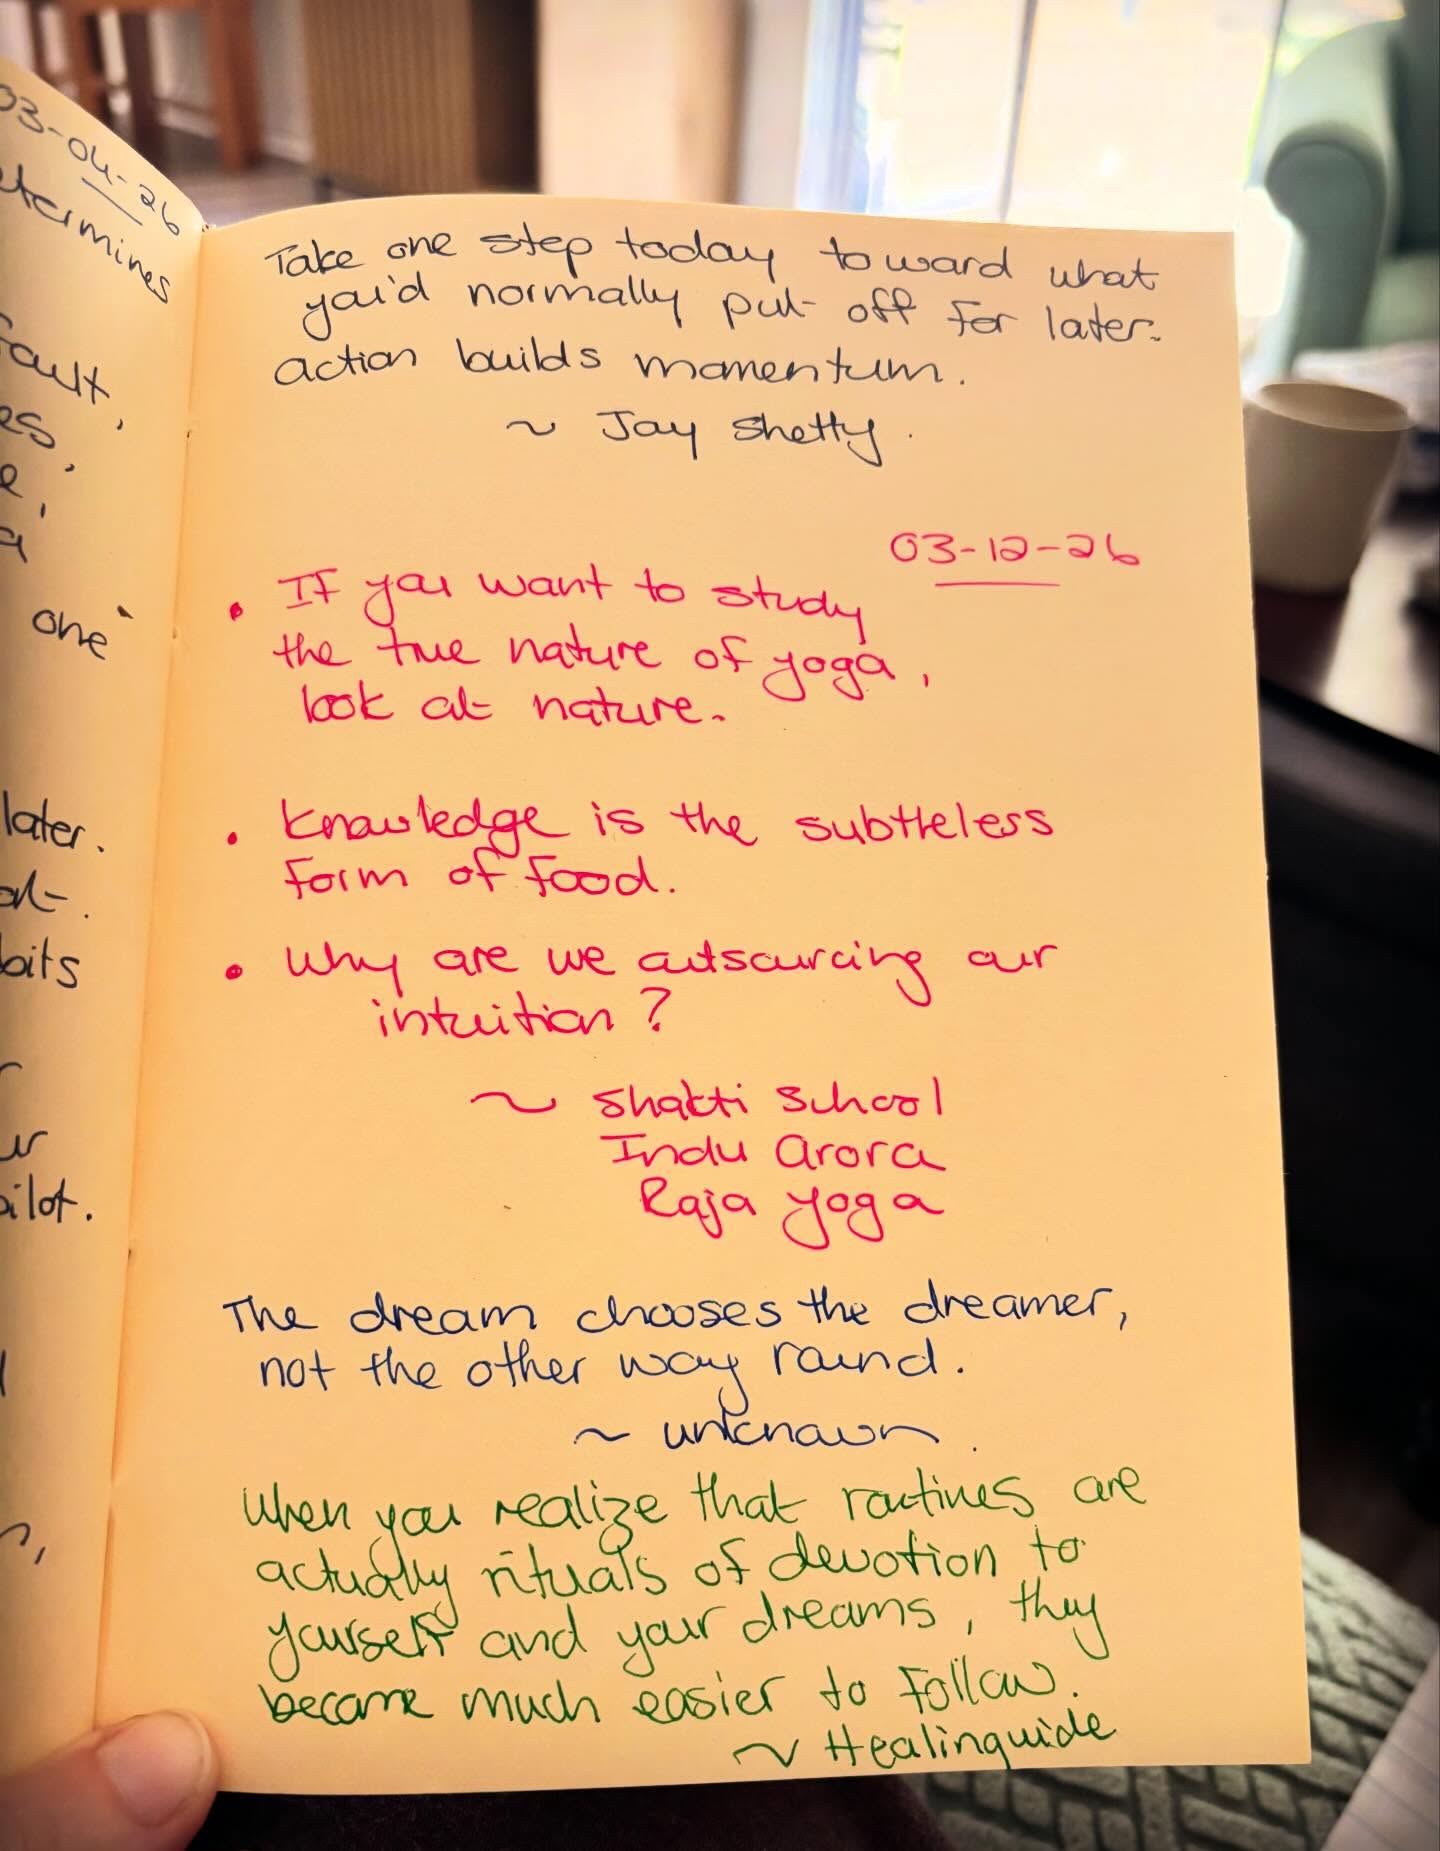 03-04-26
termines
fault,
es,
e,
a
one
later.
at.
bits
r
ur
pilot.
n,
Take one step today toward what
you'd normally put off for later.
action builds momentum.
~ Jay Shetty.
03-12-26
• If you want to study
the true nature of yoga,
look at nature.
• Knowledge is the subtleless
form of food.
• Why are we outsourcing our
intuition?
~ Shakti School
Indu Arora
Raja Yoga
The dream chooses the dreamer,
not the other way round.
~ unknown.
When you realize that routines are
actually rituals of devotion to
yourself and your dreams, they
become much easier to follow.
~ Healinguide